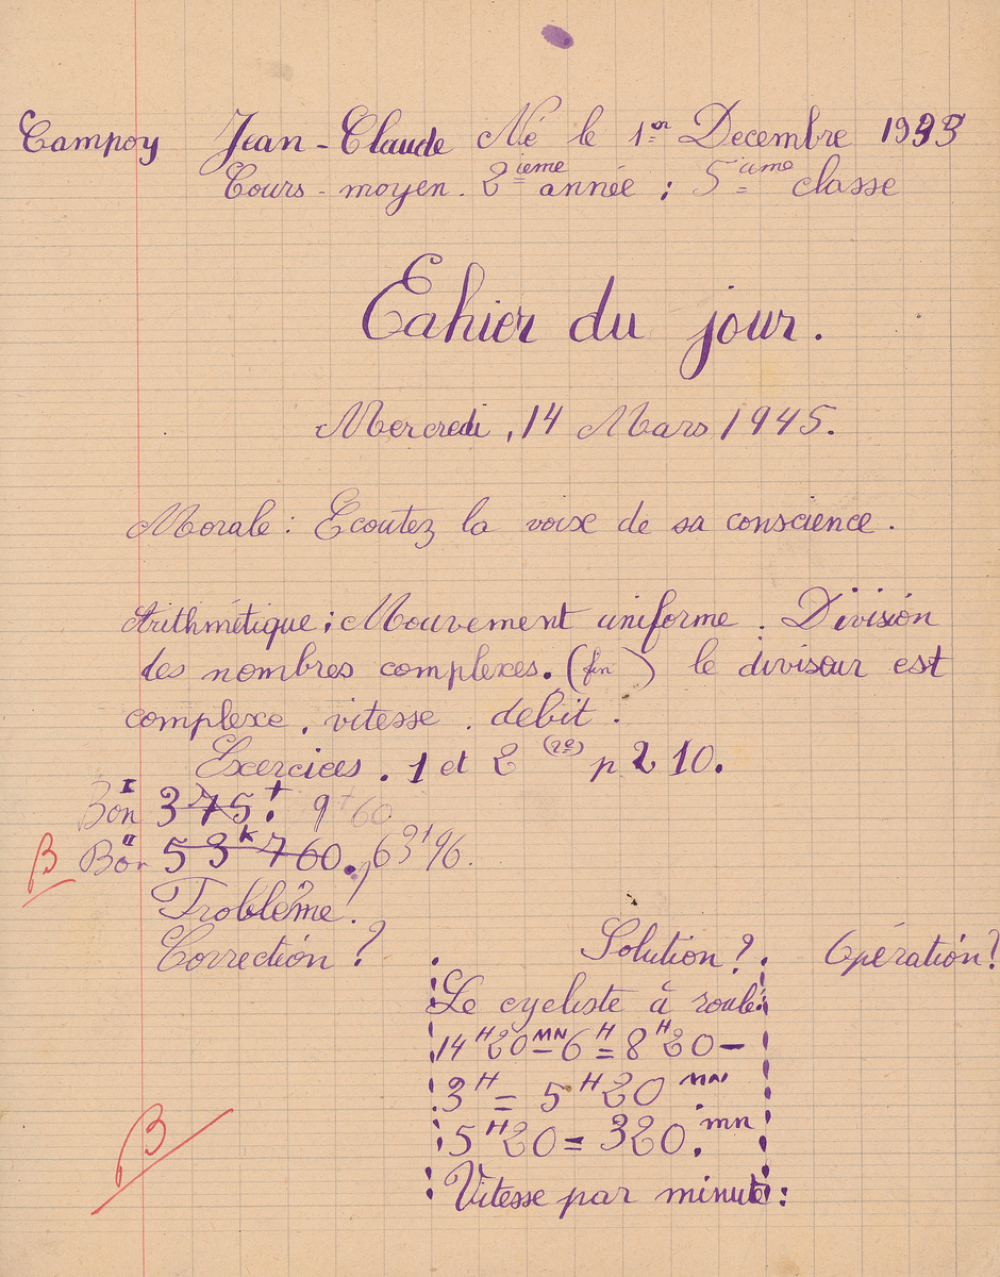 Campoy Jean-Claude Né le 1er Decembre 1933
Cours-moyen. 2ieme année ; 5ieme classe
Cahier du jour.
Mercredi, 14 Mars 1945.
Morale : Ecoutez la voix de sa conscience.
Arithmétique : Mouvement uniforme. Division
des nombres complexes. (fin) le diviseur est
complexe, vitesse, debit.
Exercices. 1 et 2 (2e) p 210.
Bon I 375. 9 60
B Bon II 53K760., 63 96.
Problême!
Correction ? Solution ? Opération ?
Le cycliste à roulé:
14H20MN-6H=8H20-
3H= 5H20MN
5H20=320.mn
B
Vitesse par minute: